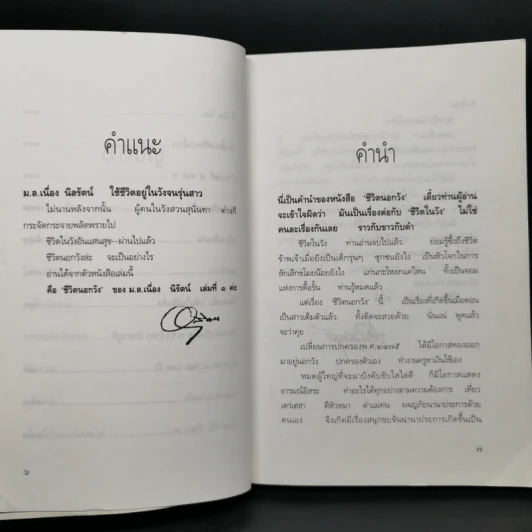 คำแนะ
ม.ล.เนื่อง นิลรัตน์ ใช้ชีวิตอยู่ในวังจนรุ่นสาว
ไม่นานหลังจากนั้น ผู้คนในวังสวนสุนันทา ต่างก็
กระจัดกระจายพลัดพรายไป
ชีวิตในวังอันแสนสุข--ผ่านไปแล้ว
ชีวิตนอกวังล่ะ จะเป็นอย่างไร
อ่านได้จากตัวหนังสือเล่มนี้
คือ 'ชีวิตนอกวัง' ของ ม.ล.เนื่อง นิรัตน์ เล่มที่ ๑ ค่ะ
๖
คำนำ
นี่เป็นคำนำของหนังสือ 'ชีวิตนอกวัง' เดี๋ยวท่านผู้อ่าน
จะเข้าใจผิดว่า มันเป็นเรื่องต่อกับ 'ชีวิตในวัง' ไม่ใช่
คนละเรื่องกันเลย ราวกับขาวกับดำ
ชีวิตในวัง ท่านอ่านจบไปแล้ว ย่อมรู้ซึ้งถึงชีวิต
ข้าพเจ้าเมื่อยังเป็นเด็กรุ่นๆ ซุกซนยังไง เป็นหัวโจกในการ
ลักเล็กขโมยน้อยยังไง แก่นกะโหลกแค่ไหน ทั้งเป็นจอม
แห่งการดื้อรั้น ท่านรู้หมดแล้ว
แต่เรื่อง 'ชีวิตนอกวัง' นี้ เป็นเรื่องที่เกิดขึ้นเมื่อตอน
เป็นสาวเต็มตัวแล้ว ทั้งดีดจะสวยด้วย นั่นแน่ พูดแล้ว
จะว่าคุย
เปลี่ยนการปกครองพ.ศ.๒๔๗๕ ได้มีโอกาสทองออก
มาอยู่นอกวัง ปกครองตัวเอง ทำงานครูหาเงินใช้เอง
หมดผู้ใหญ่ที่จะมาบังคับขับไสไล่ตี ก็มีโอกาสแสดง
อารมณ์อิสระ ทำอะไรได้ทุกอย่างตามความต้องการ เที่ยว
เตร่เฮฮา ตีหัวหมา ด่าแม่คน ผจญภัยนานาประการด้วย
ตนเอง จึงเกิดมีเรื่องสนุกขบขันนานาประการเกิดขึ้นเป็น
๗